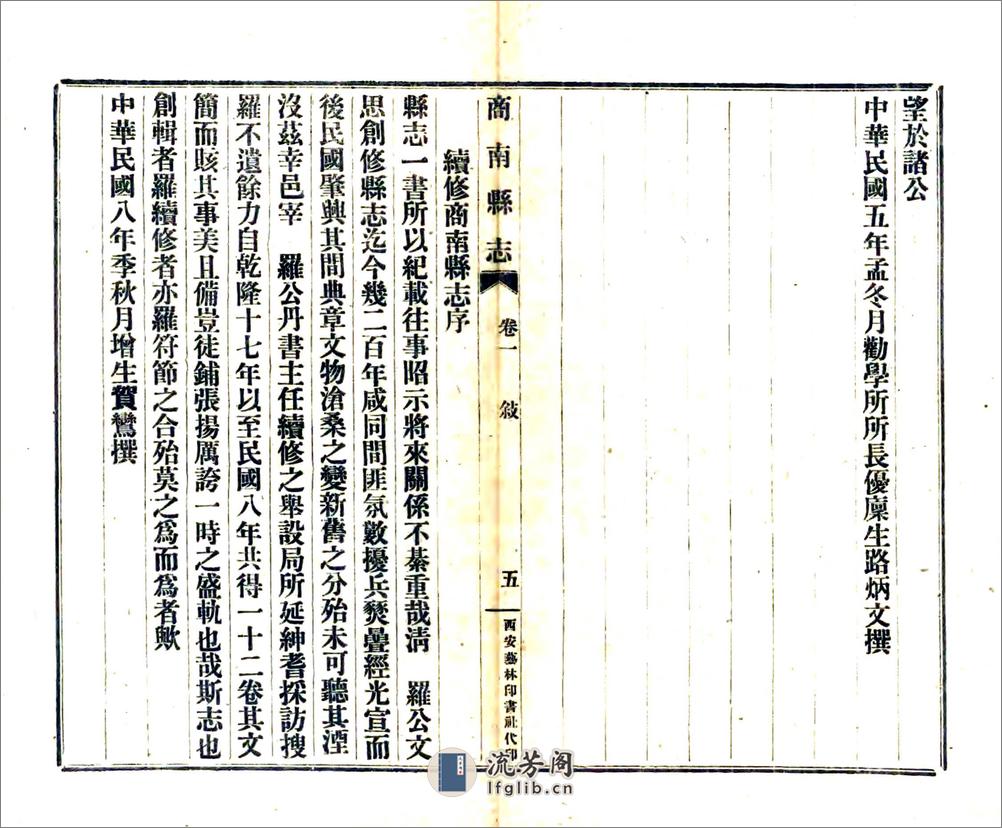 望於諸公
中華民國五年孟冬月勸學所所長優廩生路炳文撰
商南縣志 卷一 敍 五 西安藝林印書社代印
續修商南縣志序
縣志一書所以紀載往事昭示將來關係不綦重哉淸 羅公文
思創修縣志迄今幾二百年咸同間匪氛數擾兵燹疊經光宣而
後民國肇興其間典章文物滄桑之變新舊之分殆未可聽其湮
沒茲幸邑宰 羅公丹書主任續修之舉設局所延紳耆採訪搜
羅不遺餘力自乾隆十七年以至民國八年共得一十二卷其文
簡而賅其事美且備豈徒鋪張揚厲誇一時之盛軌也哉斯志也
創輯者羅續修者亦羅符節之合殆莫之爲而爲者歟
中華民國八年季秋月增生賀鸞撰
流芳阁
lfglib.cn